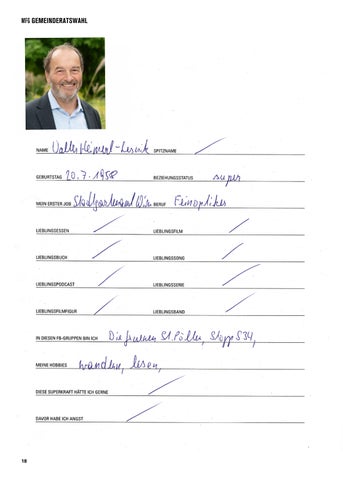 MFG GEMEINDERATSWAHL
NAME Walter Heimerl-Lesnik SPITZNAME /
GEBURTSTAG 20.7.1958 BEZIEHUNGSSTATUS super
MEIN ERSTER JOB Stadtgartenamt Wien BERUF Feinoptiker
LIEBLINGSESSEN / LIEBLINGSFILM /
LIEBLINGSBUCH / LIEBLINGSSONG /
LIEBLINGSPODCAST / LIEBLINGSSERIE /
LIEBLINGSFILMFIGUR / LIEBLINGSBAND /
IN DIESEN FB-GRUPPEN BIN ICH Die Grünen St. Pölten, Stopp S34,
MEINE HOBBIES wandern, lesen,
DIESE SUPERKRAFT HÄTTE ICH GERNE /
DAVOR HABE ICH ANGST /
18